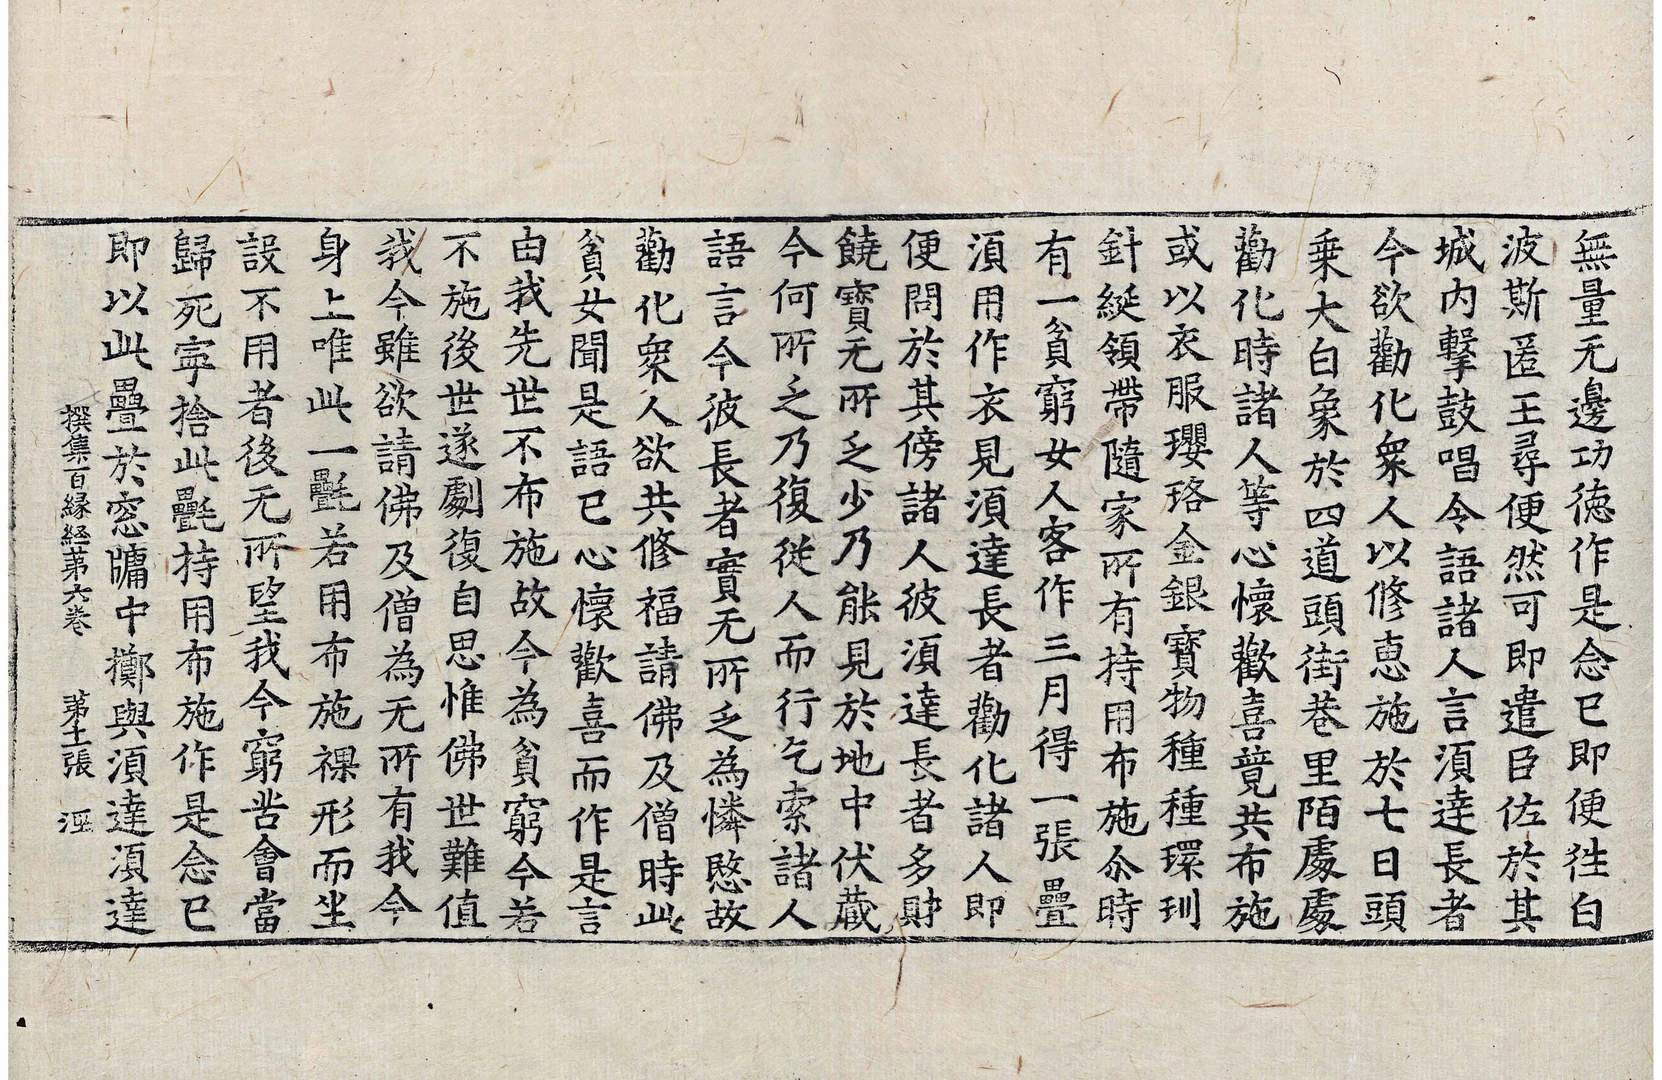 無量无邊功德作是念已即便往白
波斯匿王尋便然可即遣臣佐於其
城內擊鼓唱令語諸人言須達長者
今欲勸化衆人以修惠施於七日頭
乗大白象於四道頭街巷里陌處處
勸化時諸人等心懷歡喜競共布施
或以衣服瓔珞金銀寶物種種環玔
針綖領帶隨家所有持用布施尒時
有一貧窮女人客作三月得一張疊
須用作衣見須達長者勸化諸人即
便問於其傍諸人彼須達長者多財
饒寶无所乏少乃能見於地中伏藏
今何所乏乃復從人而行乞索諸人
語言今彼長者實无所乏為憐愍故
勸化衆人欲共修福請佛及僧時此
貧女聞是語已心懷歡喜而作是言
由我先世不布施故今為貧窮今若
不施後世遂劇復自思惟佛世難值
我今雖欲請佛及僧為无所有我今
身上唯此一㲲若用布施裸形而坐
設不用者後无所望我今窮苦會當
歸死寜捨此㲲持用布施作是念已
即以此疊於窓牖中擲與須達須達
撰集百縁経第六卷　第十一張　溼